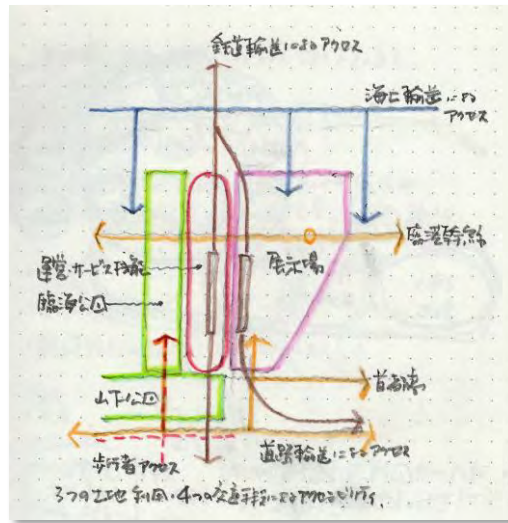 鉄道輸送によるアクセス
海上輸送による
アクセス
臨港幹線
運営・サービス機能
展示場
臨海公園
山下公園
首都高
歩行者アクセス
道路輸送によるアクセス
3つの土地利用・4つの交通手段によるアクセシビリティ.